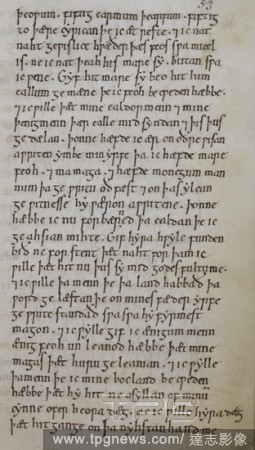 53
þeopum . fiftig earmum þearfum . fiftig
to þære cyrican þe ic æt reste . ⁊ ic nat
naht geƿislice hƿæðer þæs feos sƿa micel
is . ne ic nat þeah his mare sy . butan sƿa
ic ƿene . Gyf hit mare sy beo hit him
eallum ge mæne þe ic feoh be cƿeden hæbbe .
⁊ ic ƿille þæt mine ealdormenn ⁊ mine
þenigmenn þær ealle mid syndan ⁊ þis þus
ge dælan . Þonne hæfde ic ær on odre ƿisan
aƿriten ymbe min yrfe þa ic hæfde mare
feoh . ⁊ ma maga . ⁊ hæfde monegum man
num þa ge ƿritu odfæst ⁊ on þas ylcan
ge ƿitnesse hy ƿæron aƿritene . Þonne
hæbbe ic nu forbærned þa ealdan þe ic
ge ahsian mihte . Gif hyra hƿylc funden
bid ne for stent þæt naht for þam ic
ƿille þæt hit nu þus sy mid godes fultume .
⁊ ic ƿille þa menn þe þa land habbad þa
ƿord ge læstan þe on mines fæder yrfe
ge ƿrite standad sƿa sƿa hy fyrmest
magon . ⁊ ic ƿylle gif ic ænigum menn
ænig feoh un leanod hæbbe þæt mine
magas þæt huru ge leanian . ⁊ ic ƿylle
þa menn þe ic mine bocland be cƿeden
hæbbe þæt hy hit ne asyllan of minum
cynne ofer heora dæg . hyra dæg
þæt hit gange on þa nyhstan hand me
www.tpgnews.com/達志影像